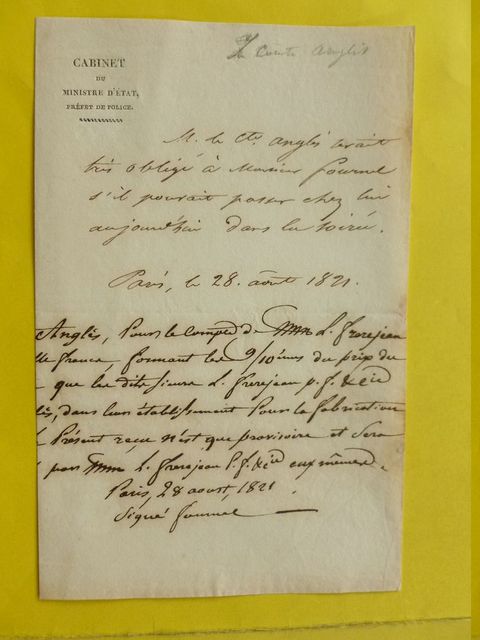 Le Comte Anglès
CABINET
DU
MINISTRE D'ÉTAT,
PRÉFET DE POLICE.
M. le Cte. anglès serait
très obligé à Monsieur fournel
s'il pouvait passer chez lui
aujourd'hui dans la soirée.
Paris, le 28. août 1821.
Anglès, Pour le Compte de Mm L. frerejean
de france formant les 9/10èmes du prix du
que les dits sieurs L. frerejean p. f. & cie
dans leur établissement Pour la fabrication
Présent reçu n'est que provisoire et Sera
par Mm L. frerejean p. f. & cie eux mêmes.
Paris, 28 aoust, 1821.
Signé fournel